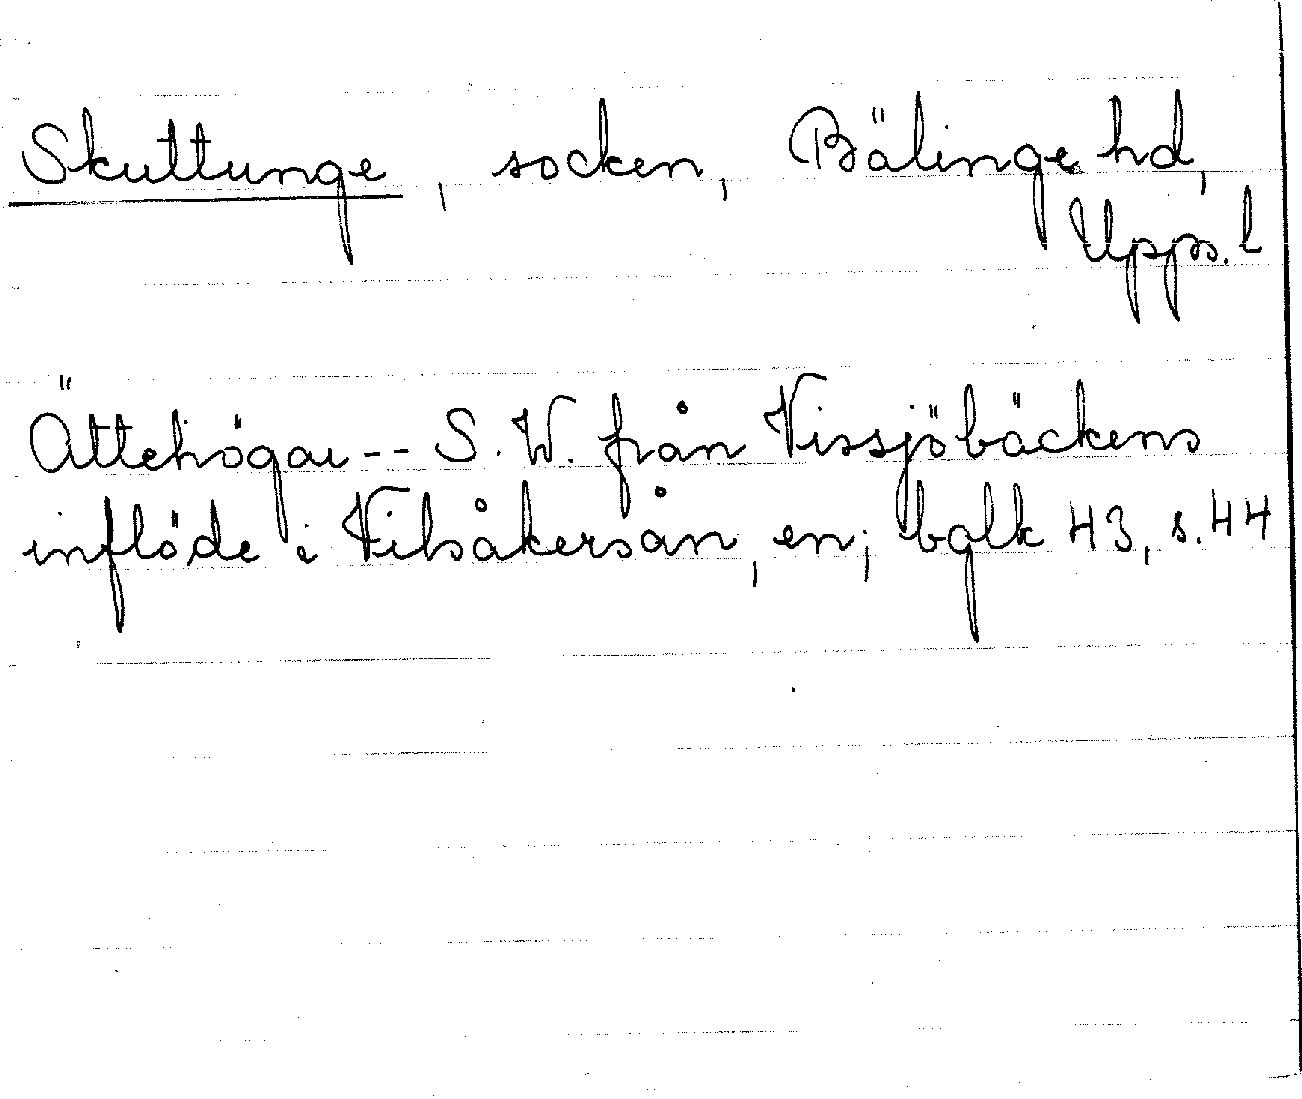 Skuttunge, socken, Bälinge hd,
Upps. l
Ättehögar -- S. W. från Vissjöbäckens
inflöde i Vilsåkersån, en; bglk 43, s. 44